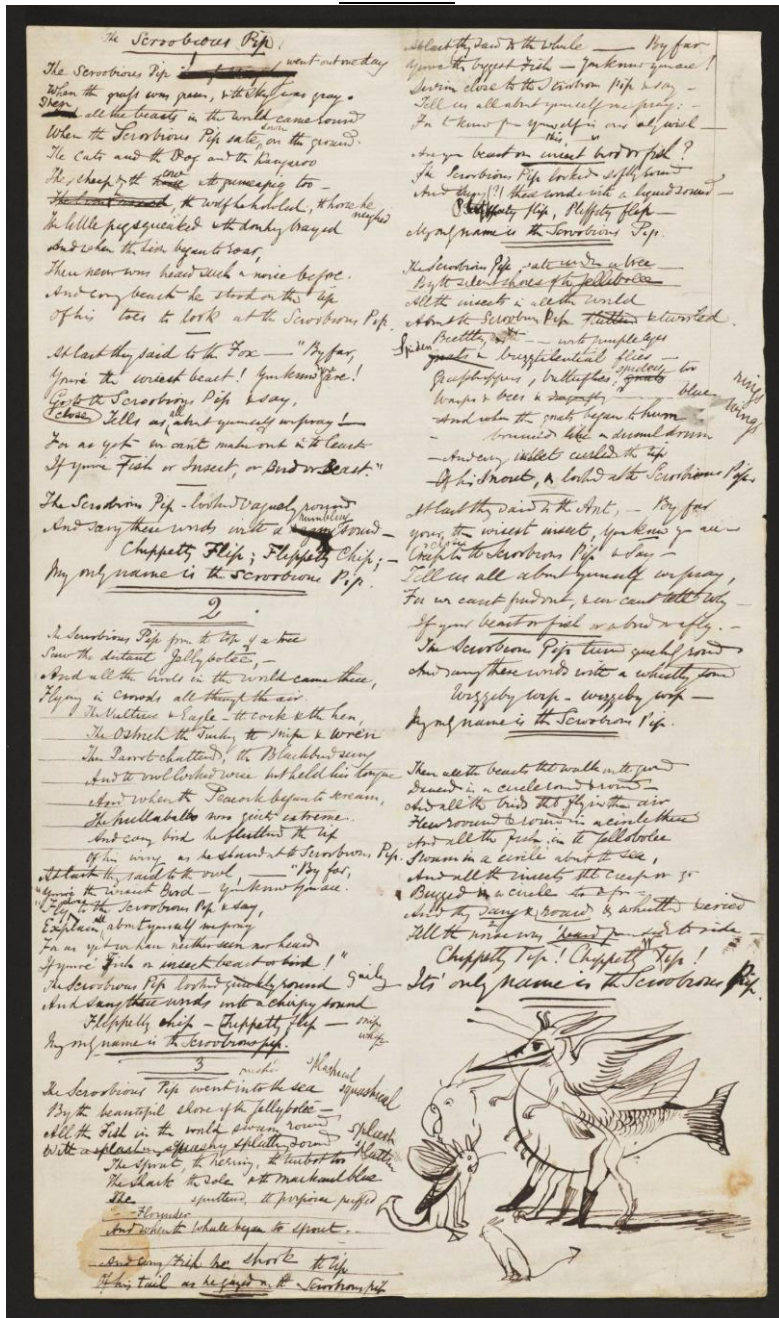 The Scroobious Pip
The Scroobious Pip went out one day
When the grass was green, & the sky was gray.
Then all the beasts in the world came round
When the Scroobious Pip sate down on the ground.
The Cats and the Dog and the Kangaroo
The sheep & the cow & the guineapig too—
the wolf he howled, the horse he neighed
The little pig squeaked & the donkey brayed
And when the lion began to roar,
There never was heard such a noise before.
And every beast he stood on the tip
Of his toes to look at the Scroobious Pip.
At last they said to the Fox — "By far,
You're the wisest beast! You know you are!
Go to the Scroobious Pip & say,
close Tell us all about yourself we pray!—
For as yet we can't make out in the least
If you're Fish or Insect, or Bird or Beast."
The Scroobious Pip looked vaguely round
And sang these words with a rumbling sound—
Chippetty Flip; Flippetty Chip;—
My only name is the Scroobious Pip.
2
The Scroobious Pip from the top of a tree
Saw the distant Jellybolee,—
And all the birds in the world came there,
Flying in crowds all through the air.
The Vulture & Eagle— the cock & the hen,
The Ostrich the Turkey the Snipe & Wren
The Parrot chattered, the Blackbird sung
And the owl looked wise but held his tongue
And when the Peacock began to scream,
The hullabaloo was quite extreme.
And every bird he fluttered the tip
Of his wing as he stared at the Scroobious Pip.
At last they said to the owl,— "By far,
You're the wisest Bird— you know you are.
Fly to the Scroobious Pip & say,
Explain all about yourself we pray
For as yet we have neither seen nor heard
If you're Fish or insect beast or bird!"
The Scroobious Pip looked quickly round gaily
And sang these words with a chirpy sound
Flippetty chip— Chippetty flip—
My only name is the Scroobious pip.
3
The Scroobious Pip went into the sea
By the beautiful shore of the Jellybolee—
All the Fish in the world swam round
With a splashy squashy spluttery sound
The Sprat, the herring, the turbot too
The Shark the Sole & the mackerel blue
The spluttered, the porpoise puffed
Flounder
And when the Whale began to spout.—
And every Fish he shook the tip
Of his tail as he gazed on the Scroobious pip
At last they said to the Whale — By far
You're the biggest Fish— you know you are!
Swim close to the Scroobious Pip & say—
Tell us all about yourself we pray:—
For to know from yourself is our only wish—
Are you beast or insect bird or fish?
The Scroobious Pip looked softly round
And sung these words with a liquid sound—
Pliffity flip, Pliffety flip—
My only name is the Scroobious Pip.
The Scroobious Pip sate under a tree
By the silent shores of the Jellybolee
All the insects in all the world
About the Scroobious Pip fluttered & twirled.
Beetles with purple eyes
Spiders gnats & buzztilential flies—
Grasshoppers, butterflies, spiders too
Wasps & bees & dragonfly blue
rings
wings
And when the gnats began to hum
bounced like a dismal drum
And every insect curled the tip
Of his snout, & looked at the Scroobious Pip.
At last they said to the Ant,— By far
you're the wisest insect, you know you are
Creep to the Scroobious Pip & say—
Tell us all about yourself we pray,
For we can't find out, & we can't tell why—
If you're beast or fish or a bird or a fly.—
The Scroobious Pip turned quickly round
And sang these words with a whistly sound
Wizzeby wip— wizzeby wip—
My only name is the Scroobious Pip.
Then all the beasts that walk on the ground
Danced in a circle round & round—
And all the birds that fly in the air
Flew round & round in a circle there
And all the fish in the Jellybolee
Swam in a circle about the sea,
And all the insects that creep or go
Buzzed in a circle to & fro—
And they sang & roared & whistled & cried
Till the noise was heard from side to side—
Chippetty Tip! Chippetty Tip!
Its only name is the Scroobious Pip.